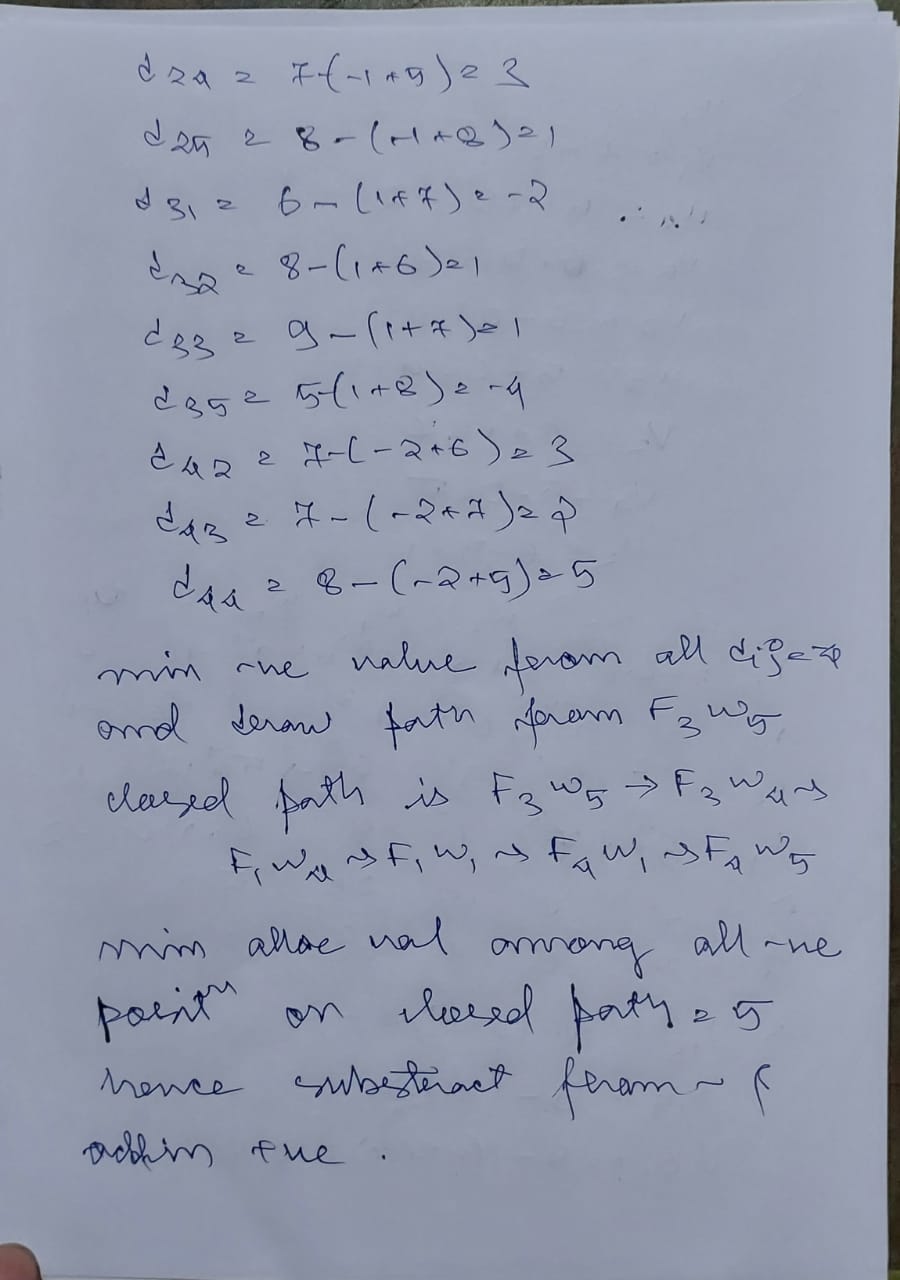 d24 = 7-(-1+5)=3
d25 = 8-(-1+8)=1
d31 = 6-(1+7)=-2
d32 = 8-(1+6)=1
d33 = 9-(1+7)=1
d35 = 5-(1+8)=-4
d42 = 7-(-2+6)=3
d43 = 7-(-2+7)=2
d44 = 8-(-2+5)=5
min -ve value from all dij=-4
and draw path from F3W5
closed path is F3W5→F3W4→
F1W4→F1W1→F4W1→F4W5
min alloc val among all -ve
positn on closed path = 5
hence substract from - &
add in +ve.